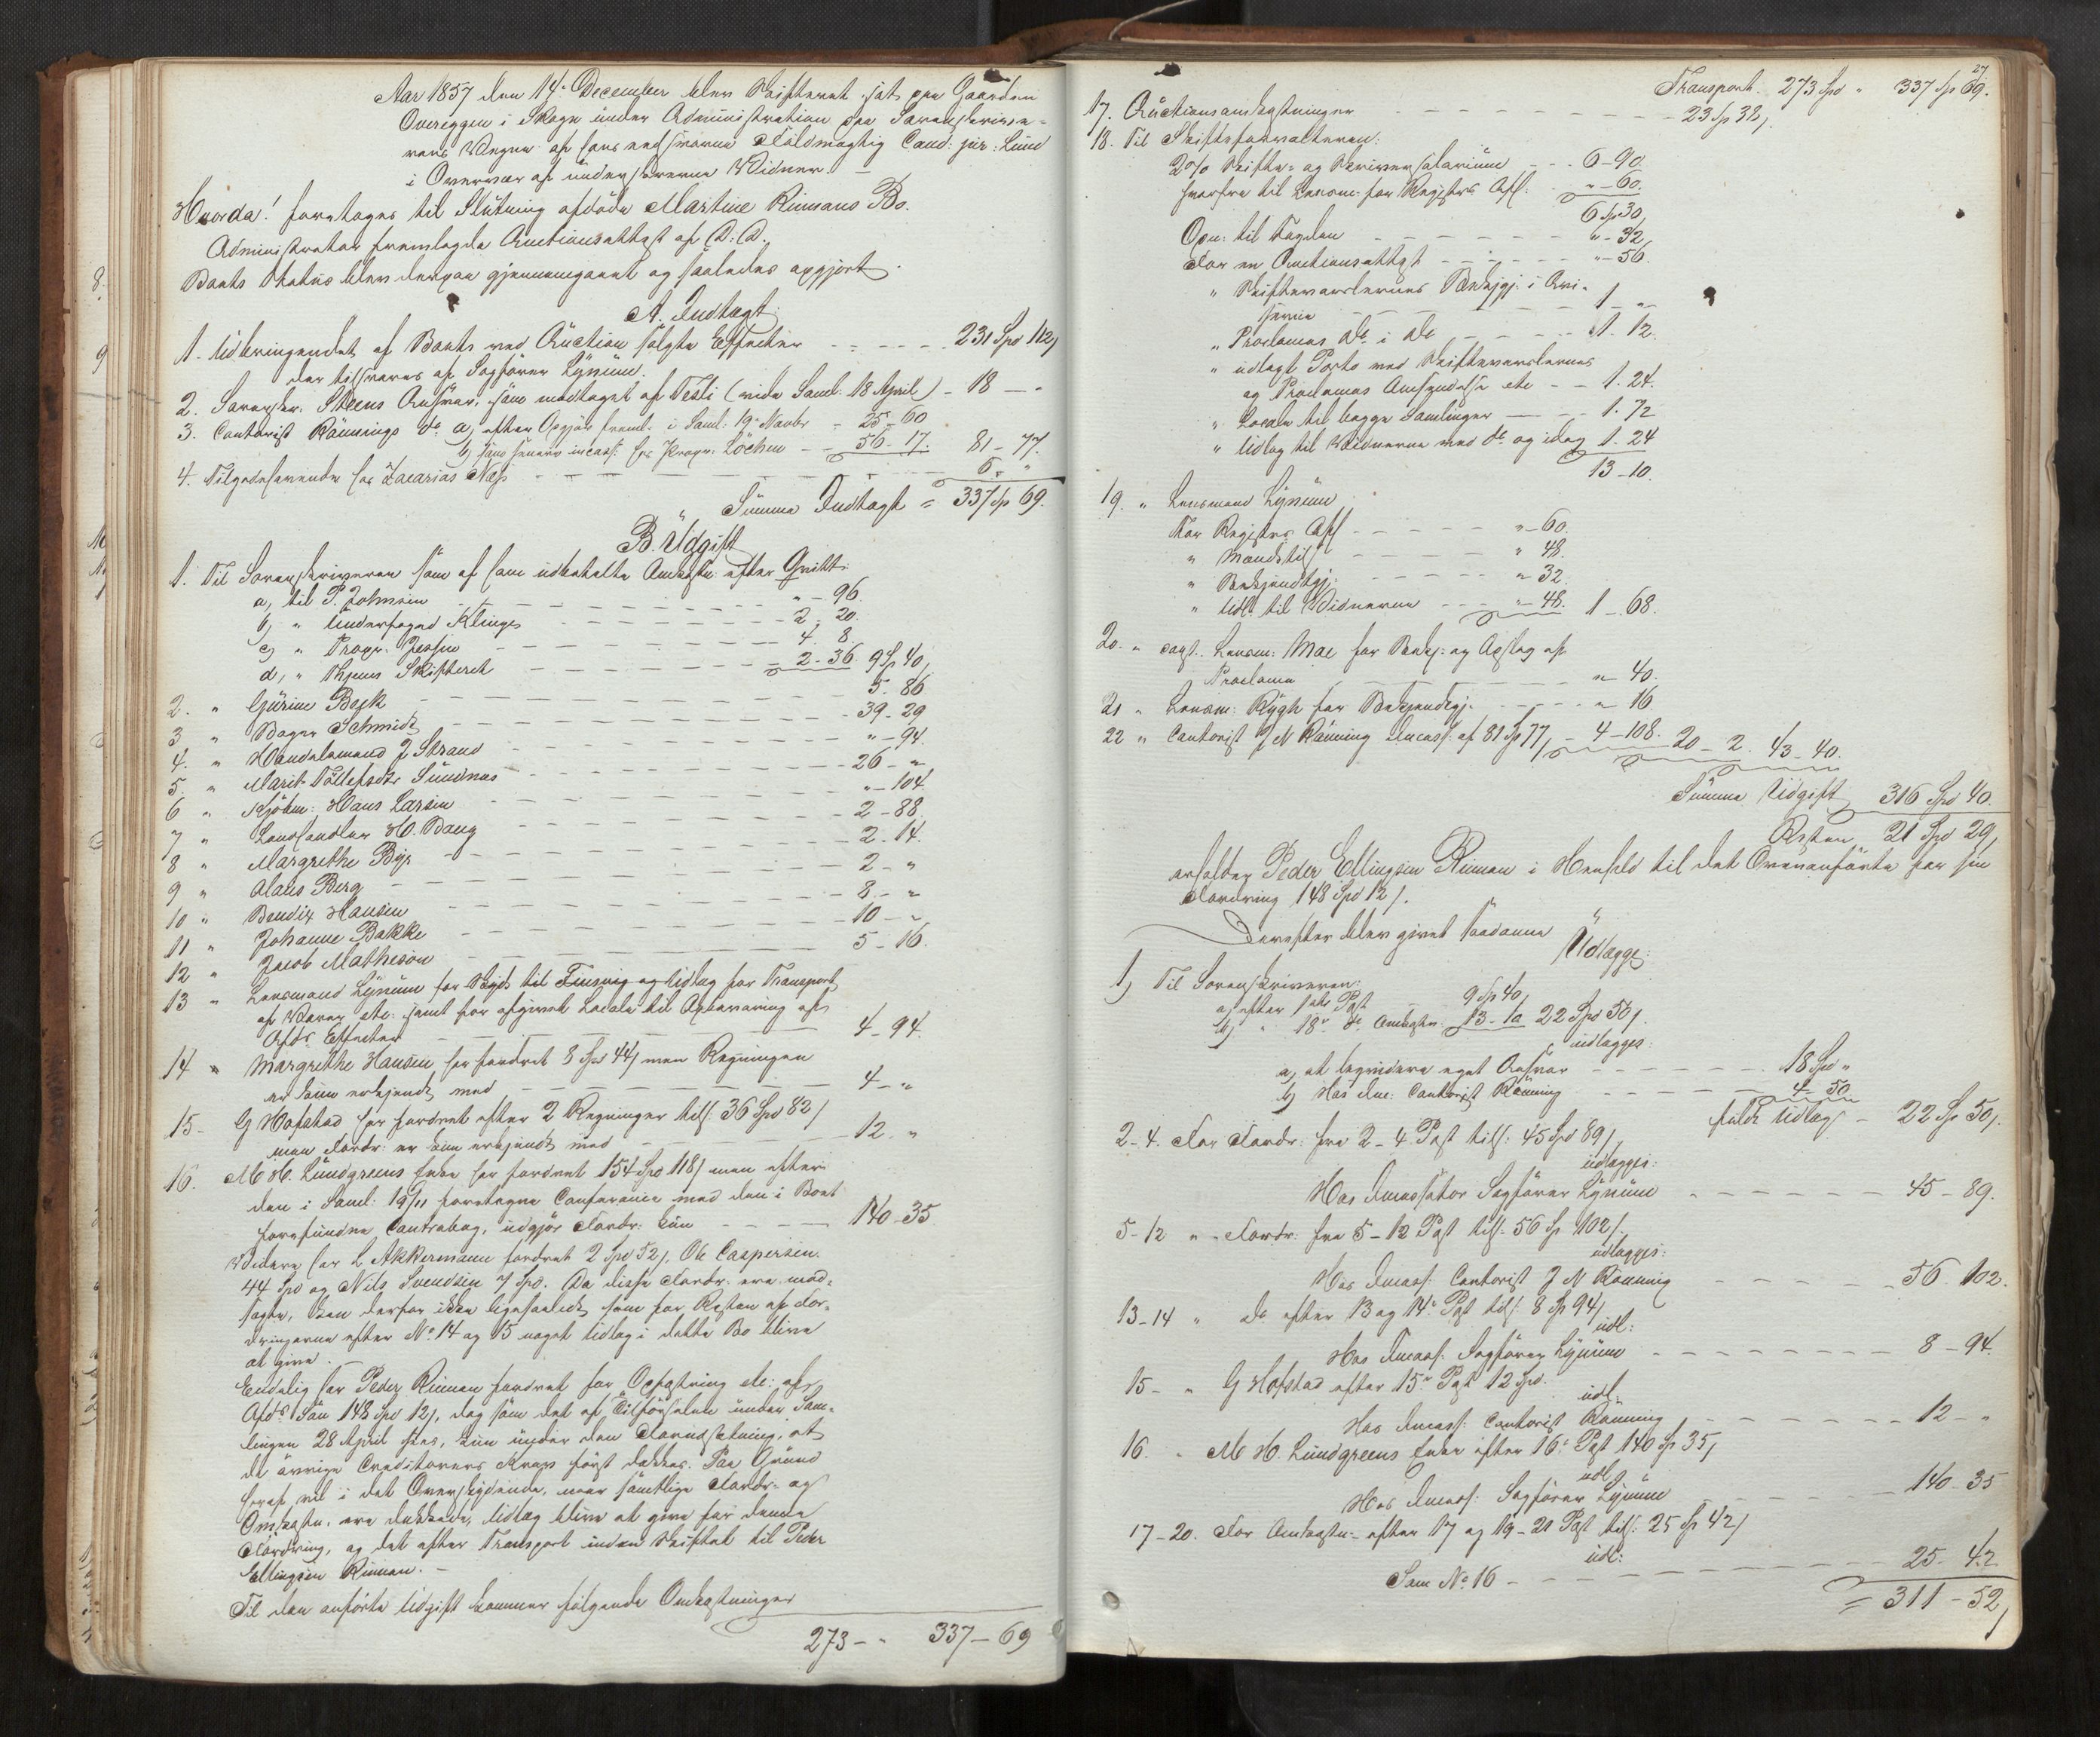 Aar 1857 den 14de December blev Skifteret sat paa Gaarden
Overeggen i Skogn under Administration paa Sorenskrive-
rens Vegne af hans edsvorne Fuldmægtig Cand: jur: Lund
i Overvær af underskrevne Vidner. –
Hvorda! foretoges til Slutning afdøde Martine Rinnans Bo.
Administrator fremlagde Auctionsattest af D: D.
Boets Status blev derpaa gjennemgaaet og saaledes opgjort.
A. Indtægt.
1. Udbringendet af Boets ved Auction solgte Effecter – – – – 231 Spd 112 /
der tilsvares af Sagfører Lÿnum.
2. Sorenskr. Steens Ansvar, som modtaget af Testi (vide Saml: 18 April) – 18 – "
3. Contorist Rønnings do a, efter Opgjør freml. i Saml: 19 Novbr – 25 – 60
b, som senere incass: hos Prop: Löchen – – 56 – 17. 81 – 77.
4. Tilgodehavende hos Zacarias Næss – – – 6. "
Summa Indtægt = 337 Sp 69.
B. Udgift
1. Til Sorenskriveren som af ham udbetalte Omkostn: efter Qvitt:
a, til P. Johnsen – – – " – 96.
b, " Underfoged Klinges – – – 2. 20.
c, " Procr. Jessen – – – 4. 8.
d, " Thjems Skifteret – – – 2 – 36. 9 Sp 40,
2. " Gurine Bejk – – – 5. 86
3 " Bager Schmidt – – – 39 – 29
4. " Handelsmand J Strand – – – " – 94.
5. " Marit Tollefsdtr Sundnæs – – – 26 – "
6 " Kjöbm: Hans Larsen – – – " – 104
7 " Landhandler H. Bang – – – 2 – 88.
8 " Margrethe Bÿe – – – 2. 14.
9 " Claus Berg – – – 2 – "
10 " Bendix Hansen – – – 8 – "
11 " Johanne Bakke – – – 10 – "
12 " Jacob Matheson – – – 5 – 16.
13 " Lensmand Lÿnum for Skyds til og Udlæg for Transport
af Varer etc: samt for afgivet Locale til Opbevaring af
Afdes Effecter – – – 4 – 94.
14 " Margrethe Hansen har fordret 8 Spd 44 / men Regningen
er kun erkjendt med – – – 4 – "
15 – G Hofstad har fordret efter 2 Regninger tils: 36 Spd 82 /
men Fordr: er kun erkjendt med – – – 12. "
16. M H. Lundgreens Enke har fordret 154 Spd 118 / men efter
den i Saml: 19/11 foretagne Conference med den i Boet
forefundne Contrabog, udgjør Fordr: kun – – – 140 – 35
Videre har L Akkermann fordret 2 Spd 52 /, Ole Caspersen
44 Spd og Nils Svendsen 7 Spd. Da disse Fordr: ere mod-
sagte, kan derfor ikke ligesaalidt som for Resten af For-
dringerne efter No 14 og 15 noget Udlæg i dette Bo blive
at give. –
Endelig har Peder Rinnan fordret for Opfostring etc: af
Afdes Søn 148 Spd 12 /, dog som det af Tilførselen under Sam-
lingen 28 April sees, kun under den Forudsetning, at
de øvrige Creditorers Krav først dækkes. Paa Grund
heraf vil i det Overskydende, naar samtlige Fordr: og
Omkostn. ere dækkede, Udlæg blive at give for denne
Fordring, og det efter Transport inden Skiftet til Peder
Ellingsen Rinnan. –
Til den anførte Udgift kommer følgende Omkostninger
273 – " 337 – 69
27
Transport. 273 Spd " 337 Sp 69.
17. Auctionsomkostninger – – – 23 Sp 38 /
18. Til Skifteforvalteren:
2 % Skifte- og Skriversalarium – – – 6 – 90.
hvorfra til Lensm: for Registrs Aff: " – 60.
6 Sp 30,
Opn: til Fogden – – – " – 32,
For en Auctionsattest – – – " – 56.
" Skiftevarslernes Bekjgj: i Avi-
serne – – – 1 – "
" Proclamas do i do – – – 1. 12.
" udlagt Porto med Skiftevarslernes
og Proclamas Ansendelse etc – – 1. 24.
" Locale til begge Samlinger – – – 1. 72
" Udlæg til Vidnerne med do og idag 1. 24
13 – 10.
19. " Lensmand Lÿnum
For Registrs Aff – – – " – 60.
" Mændstils: – – – " 48.
" Bekjendtgj: – – – " 32.
" Udl: til Vidnerne – – – " – 48. 1 – 68.
20. " const. Lensm: Moe for Bekj: og Opslag af
Proclama – – – " – 40.
21 " Lensm: Rÿgh for Bekjendtgj. – – – " 16
22 " Contorist J N Rønning Incass: af 81 Sp 77, – 4 – 108. 20 – 2. 43 – 40.
Summa Udgift 316 Spd 40.
Resten 21 Spd 29,
erholder Peder Ellingsen Rinnan i Henhold til det Ovenanførte for sin
Fordring 148 Spd 12 /.
Derefter blev givet saadanne
Udlægge:
1, Til Sorenskriveren:
a, efter 1ste Post – 9 Sp 40,
b, " 18de do Omkostn. 13 – 10 22 Spd 50 /.
udlægges:
a, at liqvidere eget Ansvar – – – 18 Spd "
b, Hos Inc: Contorist Rønning – – – 4 – 50
fuldt Udlæg – 22 Sp 50 /.
2 – 4. For Fordr: fra 2 – 4 Post tils: 45 Spd 89 /,
udlægges:
Hos Incassator Sagfører Lÿnum – – – 45 – 89.
5 – 12 " – Fordr: fra 5 – 12 Post tils: 56 Sp 102 /.
udlægges:
Hos Incass: Contorist J N Rønning – – – 56. 102.
13 – 14 " Do efter 13 og 14de Post tils: 8 Sp 94 /
udl:
Hos Incass: Sagfører Lÿnum – – – 8 – 94.
15 – " G Hofstad efter 15de Post 12 Spd.
udl.
Hos Incass: Contorist Rønning – – – 12 – "
16. " M H. Lundgreens Enke efter 16de Post 140 Sp 35,
udl.
Hos Incass: Sagfører Lÿnum – – – 140 – 35
17 – 20. For Omkostn: efter 17 og 19 – 21 Post tils: 25 Sp 42 /
udl:
Som No 16 – – – 25 – 42
= 311 – 52 /